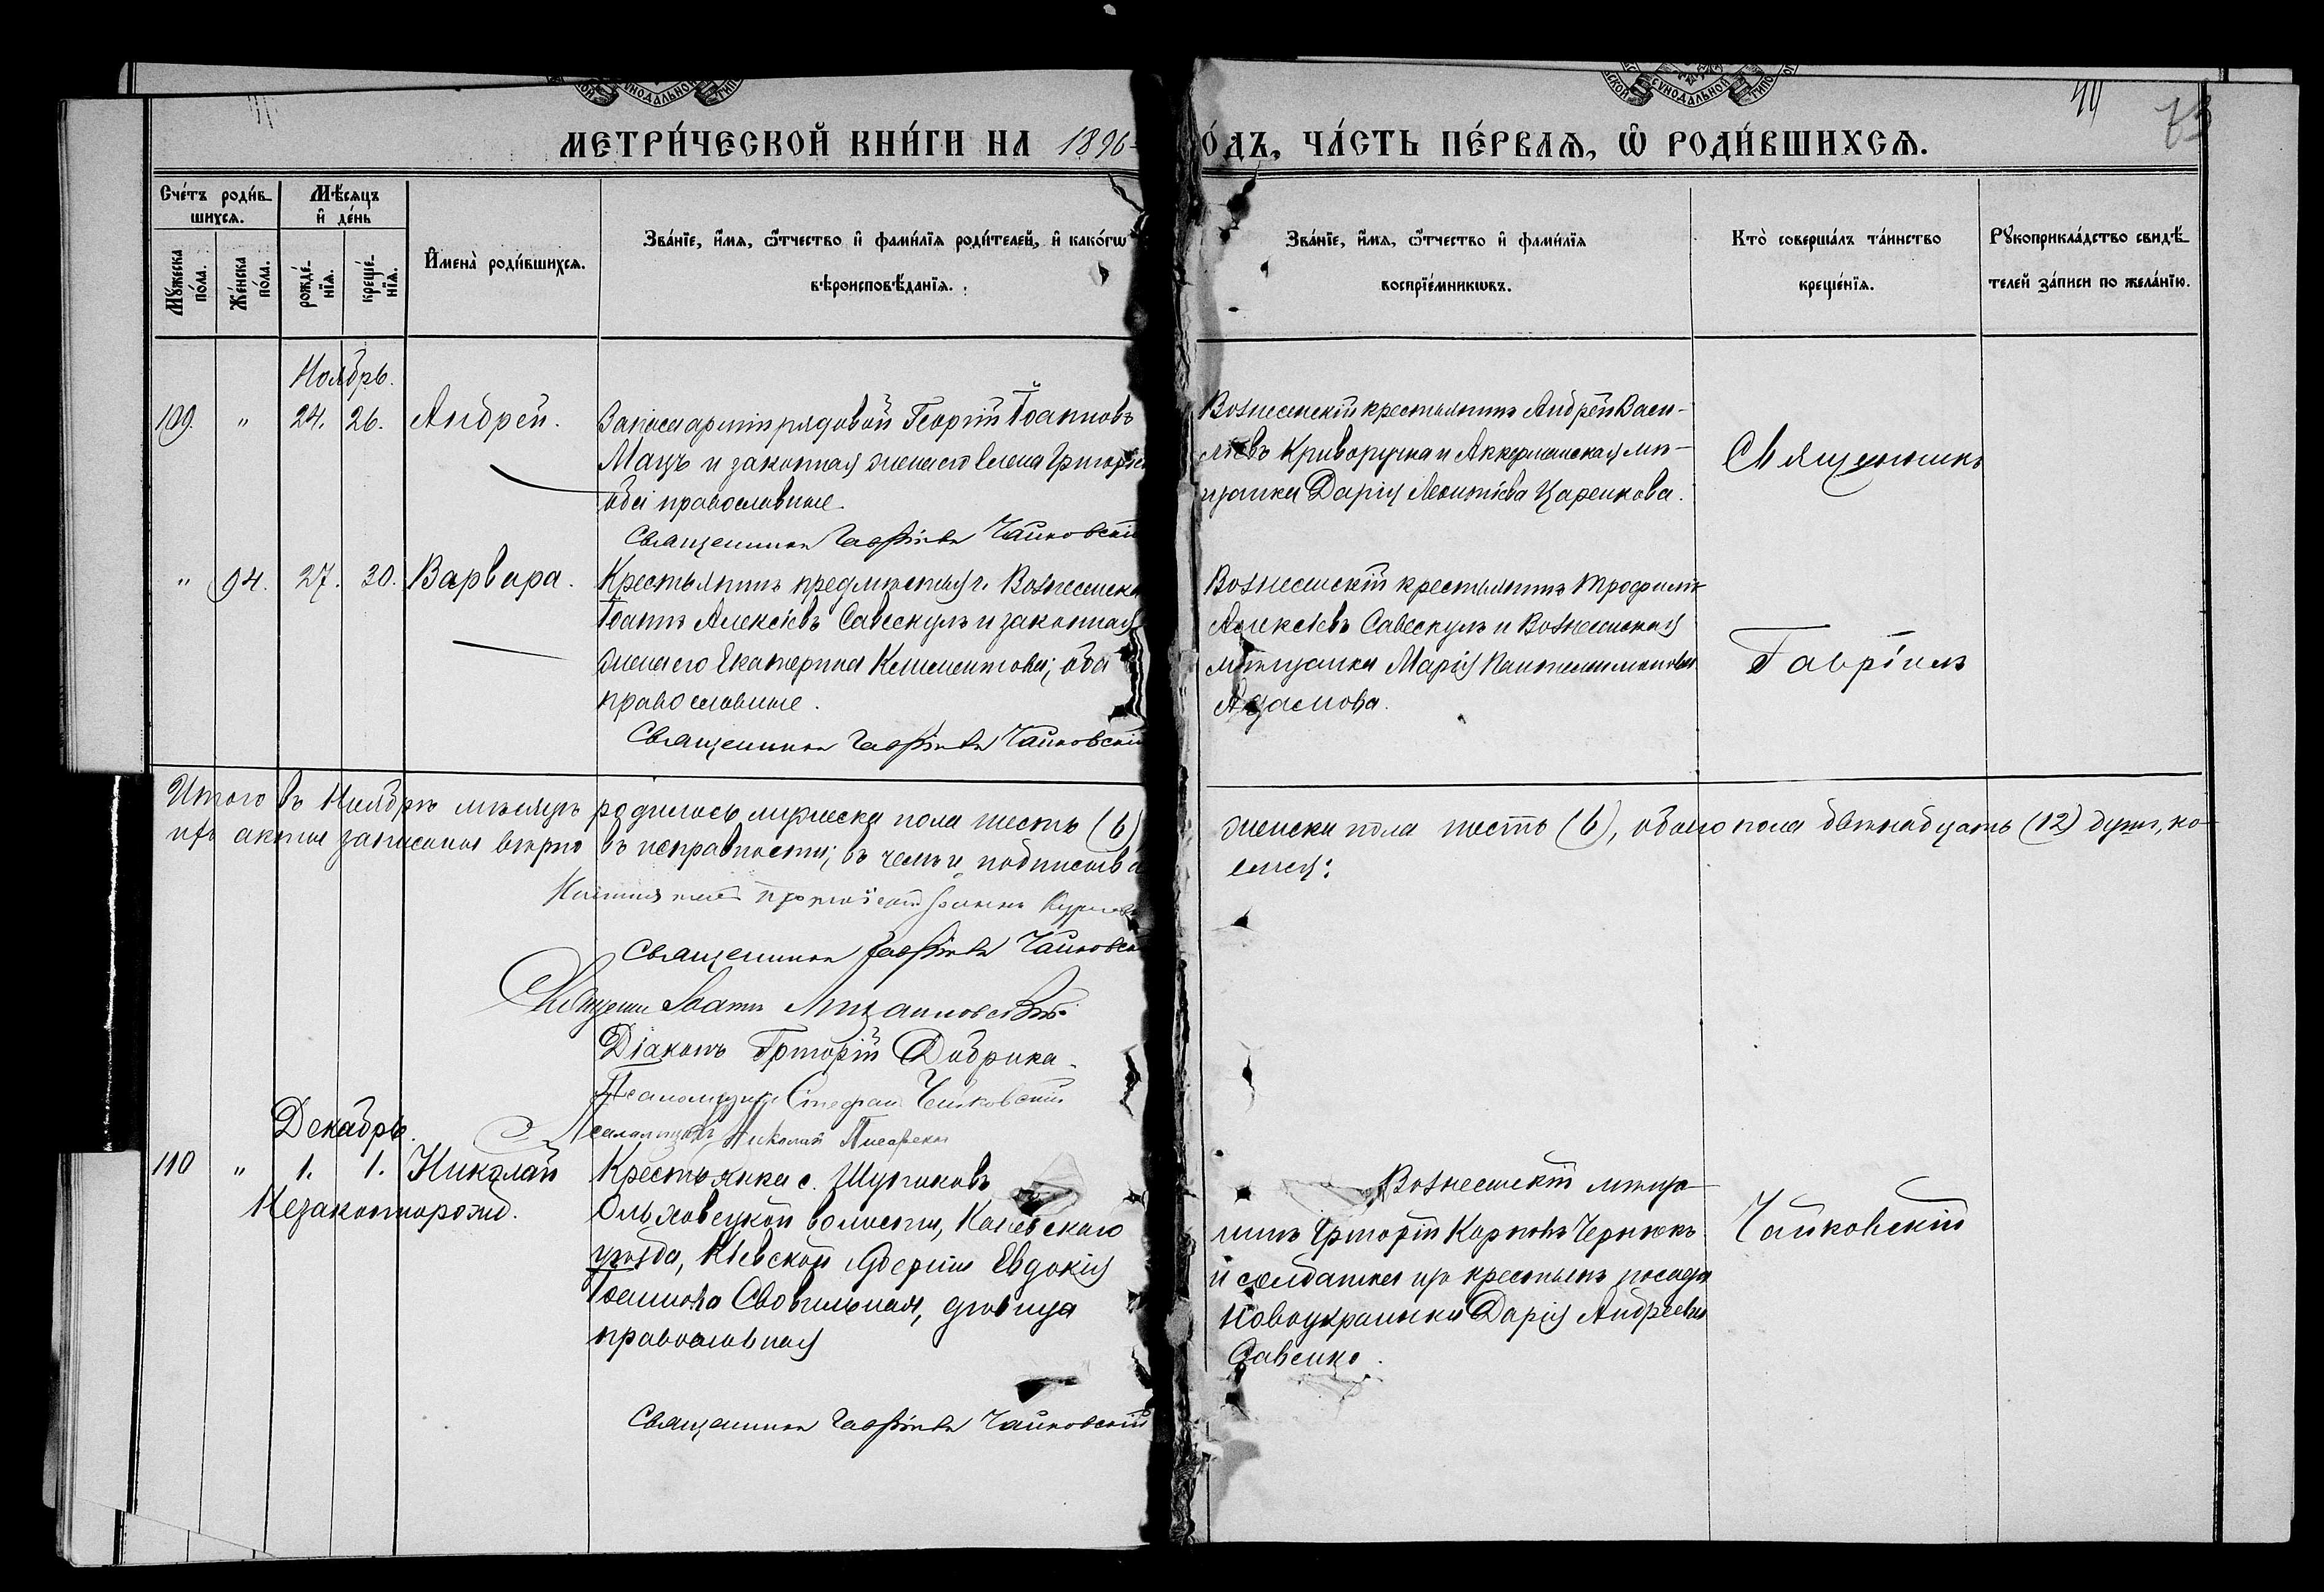 МЕТРИ́ЧЕСКОЙ КНИ́ГИ НА 1896
О́ДЪ, ЧА́СТЬ ПЕ́РВАѦ, Ѿ РОДИ́ВШИХСѦ.
49
73
Сче́тъ роди́в-
шихсѧ.
Мѣ́сяцъ
и҆ де́нь
Мꙋ́жеска
по́ла.
Же́нска
по́ла.
рожде́-
нїѧ.
креще́-
нїѧ.
И҆мена̀ роди́вшихсѧ.
Зва́нїе, и҆́мѧ, ѻ҆́тчество и҆ фами́лїѧ роди́телей, и҆ како́гѡ
вѣроисповѣ́данїѧ.
Зва́нїе, и҆́мѧ, ѻ҆́тчество и҆ фами́лїѧ
воспрїе́мникѡвъ.
Кто̀ соверша́лъ та́инство
креще́нїѧ.
Рꙋкоприкла́дство свидѣ́-
телей за́писи по жела́нїю.
Ноябрь.
109. " 24. 26. Андрей.
Запаса арміи рядовой Георгій Іоанновъ
Мацъ и законная жена его Елена
оба православные.
Священникъ Гавріилъ Чайковскій
Вознесенскій крестьянинъ Андрей Васи-
льевъ Криворучка и Аккерманская мѣ-
щанка Дарія Леонтіева Царенкова.
Священникъ
" 94. 27. 30. Варвара.
Крестьянинъ предмѣстья г. Вознесенска
Іоаннъ Алексіевъ Савескулъ и законная
жена его Екатерина Климентова; оба
православные.
Священникъ Гавріилъ Чайковскій
Вознесенскій крестьянинъ Трофимъ
Алексіевъ Савескулъ и Вознесенская
мѣщанка Марія Пантелеимонова
Гавріилъ
Итого въ Ноябрѣ мѣсяцѣ родилось мужеска пола шесть (6)
женска пола шесть (6), обоего пола двѣнадцать (12) душъ, ко-
ихъ акты записаны вѣрно въ исправности; въ чемъ и подписыва
емся:
протоіерей Іоаннъ
Священникъ Гавріилъ Чайковскій
Священникъ Іоаннъ
Діаконъ Григорій Добрика.
Псаломщикъ Стефанъ Чайковскій
Псаломщикъ Николай
Декабрь.
110 " 1. 1. Николай
Незаконнорожд.
Крестьянка с.
Ольховецкой волости, Каневскаго
уѣзда, Кіевской губерніи Евдокія
Іоаннова Своевольная, дѣвица
православная
Священникъ Гавріилъ Чайковскій
Вознесенскій мѣща-
нинъ Григорій Карповъ Чернюкъ
и солдатка изъ крестьянъ посада
Новоукраинки Дарія Андреева
Савенко.
Чайковскій